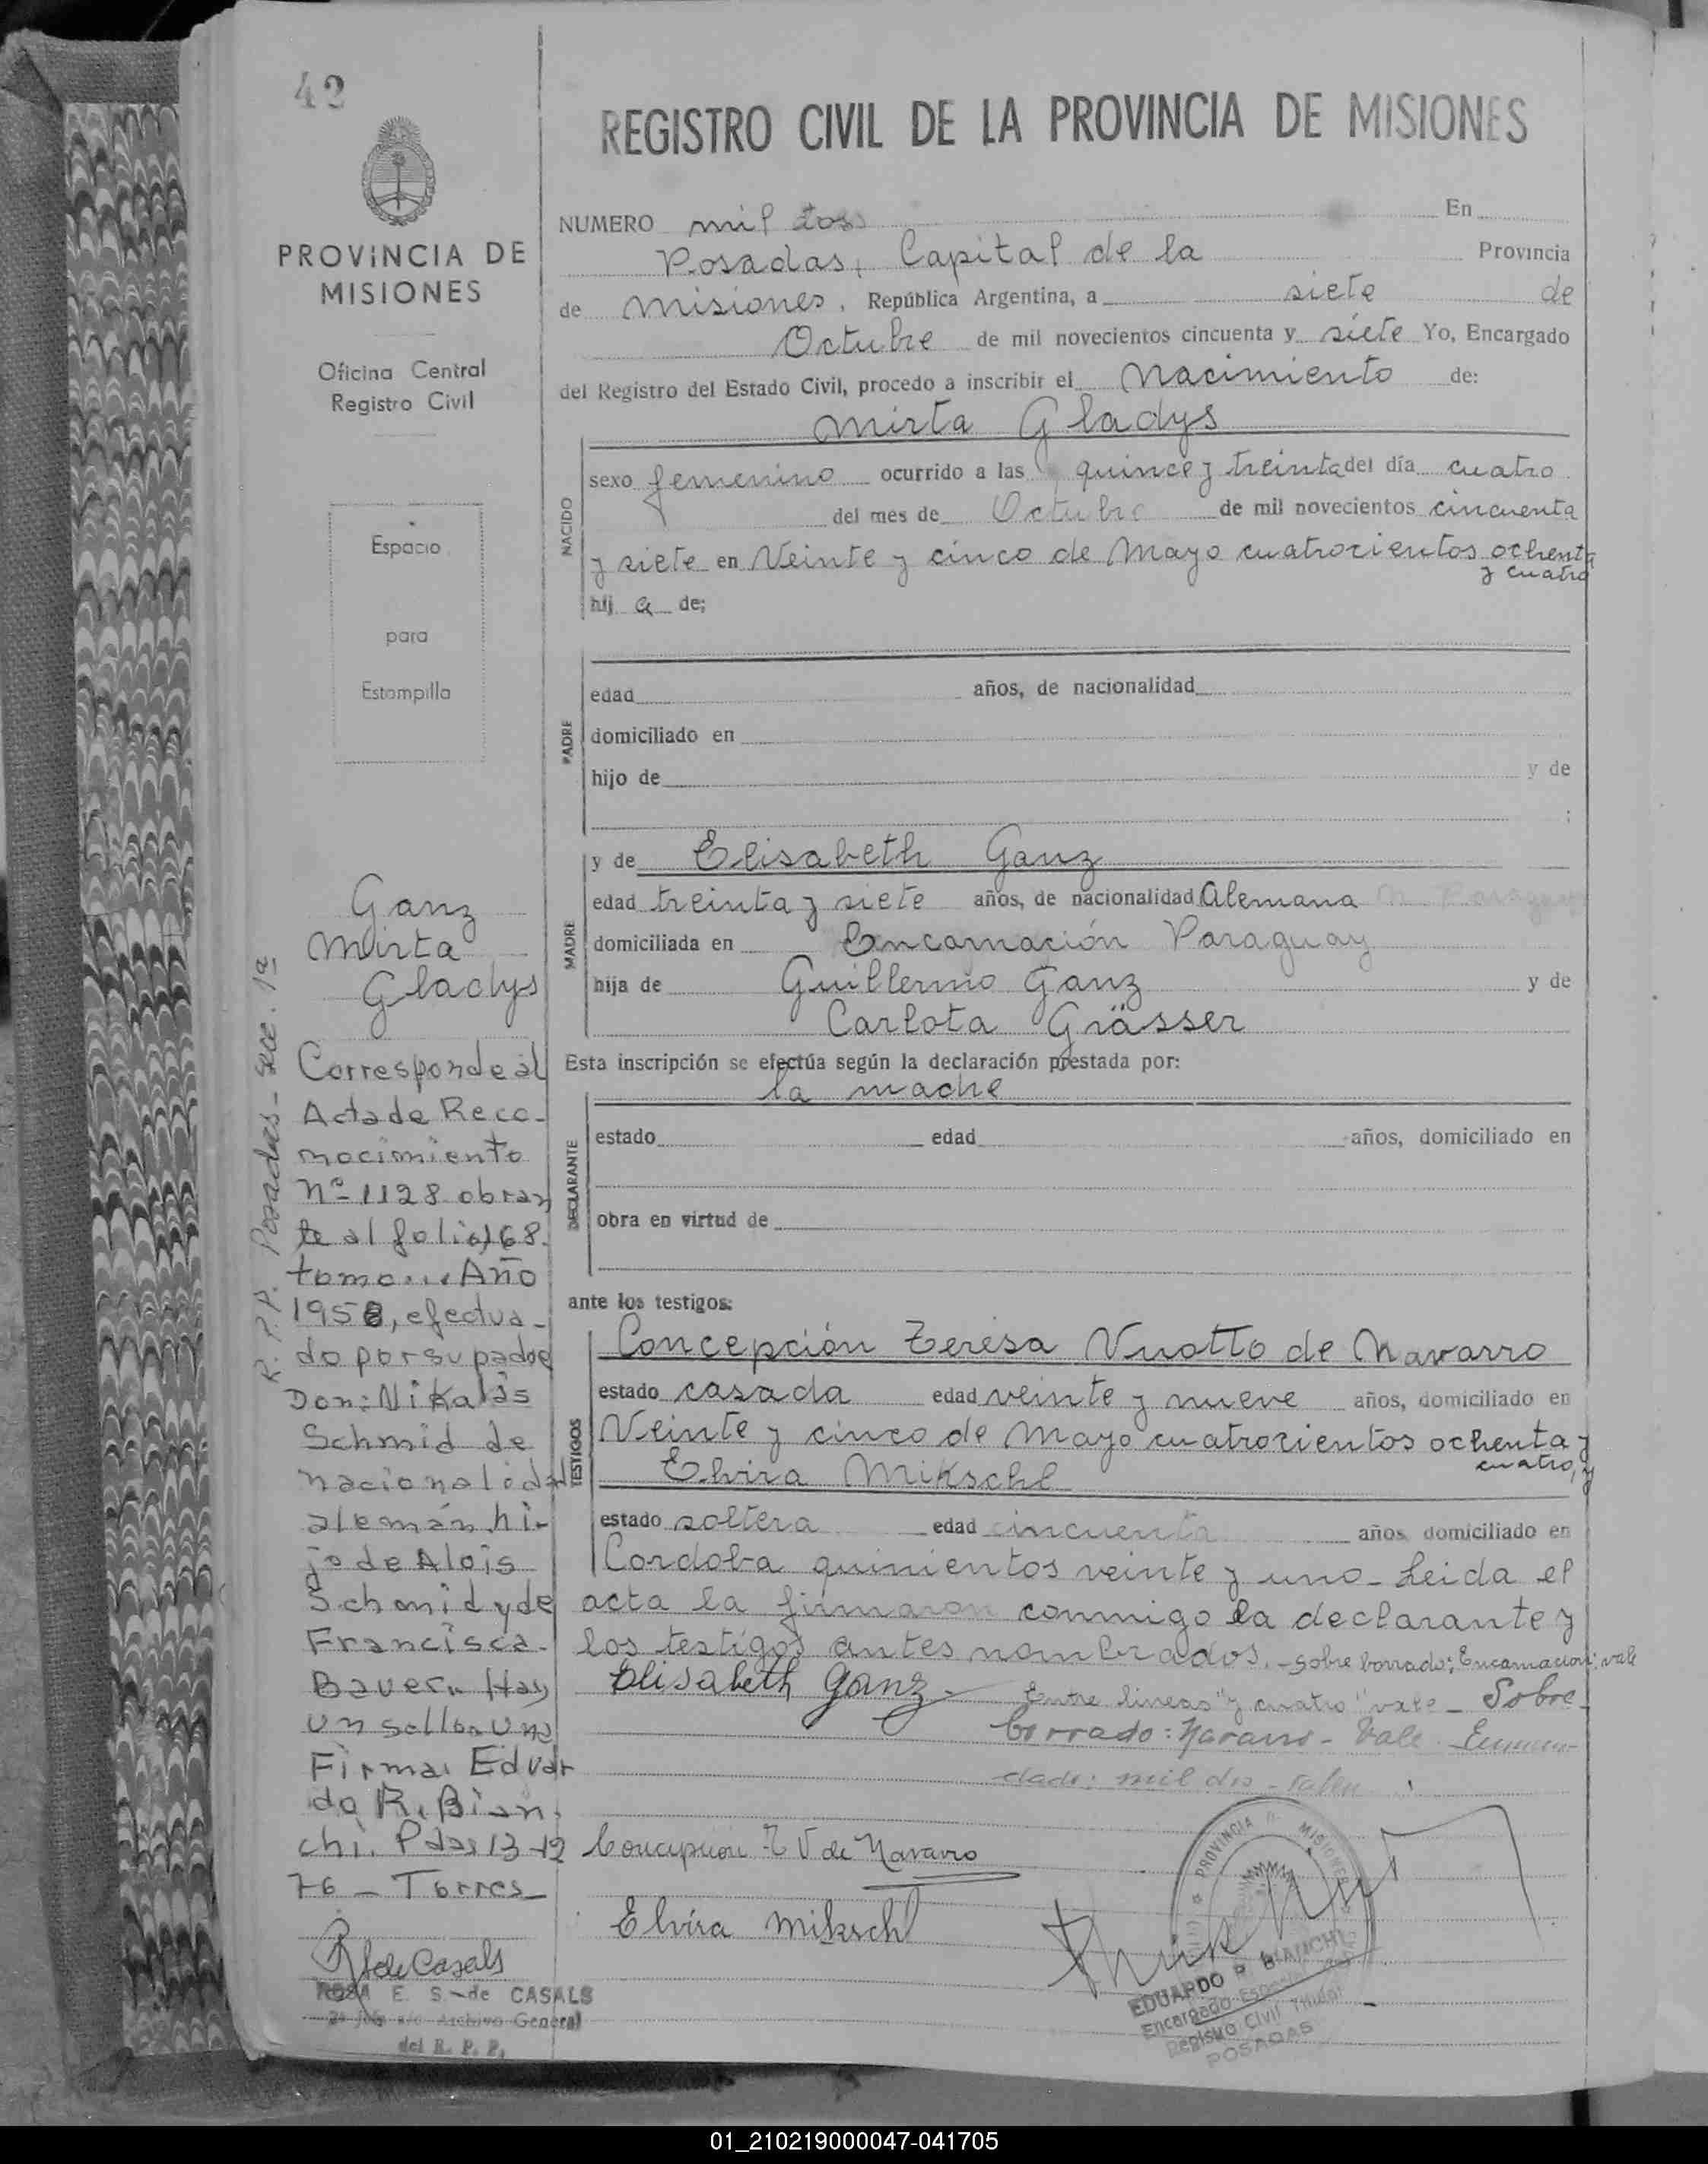 42
PROVINCIA DE
MISIONES
Oficina Central
Registro Civil
Espacio
para
Estampilla
Ganz
Mirta
Gladys
R. P. P. Posadas - Secc. 1ª
Corresponde al
Acta de Reco-
nocimiento
Nº 1128 obran
te al folio 168.
tomo... Año
1958, efectua-
do por su padre
Don: Nikalas
Schmid de
nacionalidad
alemán hi-
jo de Alois
Schmid y de
Francisca
Bauer. Hay
un sello. Una
Firma: Eduar
do R. Bian
chi. Pdas 13-12
76 - Torres
ROSA E. S. de CASALS
Archivo General
del R. P. P.
REGISTRO CIVIL DE LA PROVINCIA DE MISIONES
NUMERO mil dos En
Posadas, Capital de la Provincia
de Misiones, República Argentina, a siete de
Octubre de mil novecientos cincuenta y siete Yo, Encargado
del Registro del Estado Civil, procedo a inscribir el Nacimiento de:
Mirta Gladys
NACIDO
sexo femenino ocurrido a las quince y treinta del día cuatro
del mes de Octubre de mil novecientos cincuenta
y siete en Veinte y cinco de Mayo cuatrocientos ochenta
y cuatro
hij a de;
PADRE
edad años, de nacionalidad
domiciliado en
hijo de y de
;
MADRE
y de Elisabeth Ganz
edad treinta y siete años, de nacionalidad Alemana
domiciliada en Encarnación Paraguay
hija de Guillermo Ganz y de
Carlota Grässer
Esta inscripción se efectúa según la declaración prestada por:
la madre
DECLARANTE
estado edad años, domiciliado en
obra en virtud de
ante los testigos:
TESTIGOS
Concepción Teresa Vuotto de Navarro
estado casada edad veinte y nueve años, domiciliado en
Veinte y cinco de Mayo cuatrocientos ochenta y
cuatro, y
Elvira Mikschl
estado soltera edad cincuenta años domiciliado en
Cordoba quinientos veinte y uno - Leida el
acta la firmaron conmigo la declarante y
los testigos antes nombrados. - sobre borrado: Encarnacion: vale
Elisabeth Ganz - Entre lineas "y cuatro" vale - Sobre
borrado: Navarro - Vale. Enmen-
dado: mil dos - valen
Concepcion T V de Navarro
Elvira Mikschl
PROVINCIA D. MISIONES
EDUARDO R. BIANCHI
Encargado Especial
Registro Civil Titular
POSADAS
01_210219000047-041705